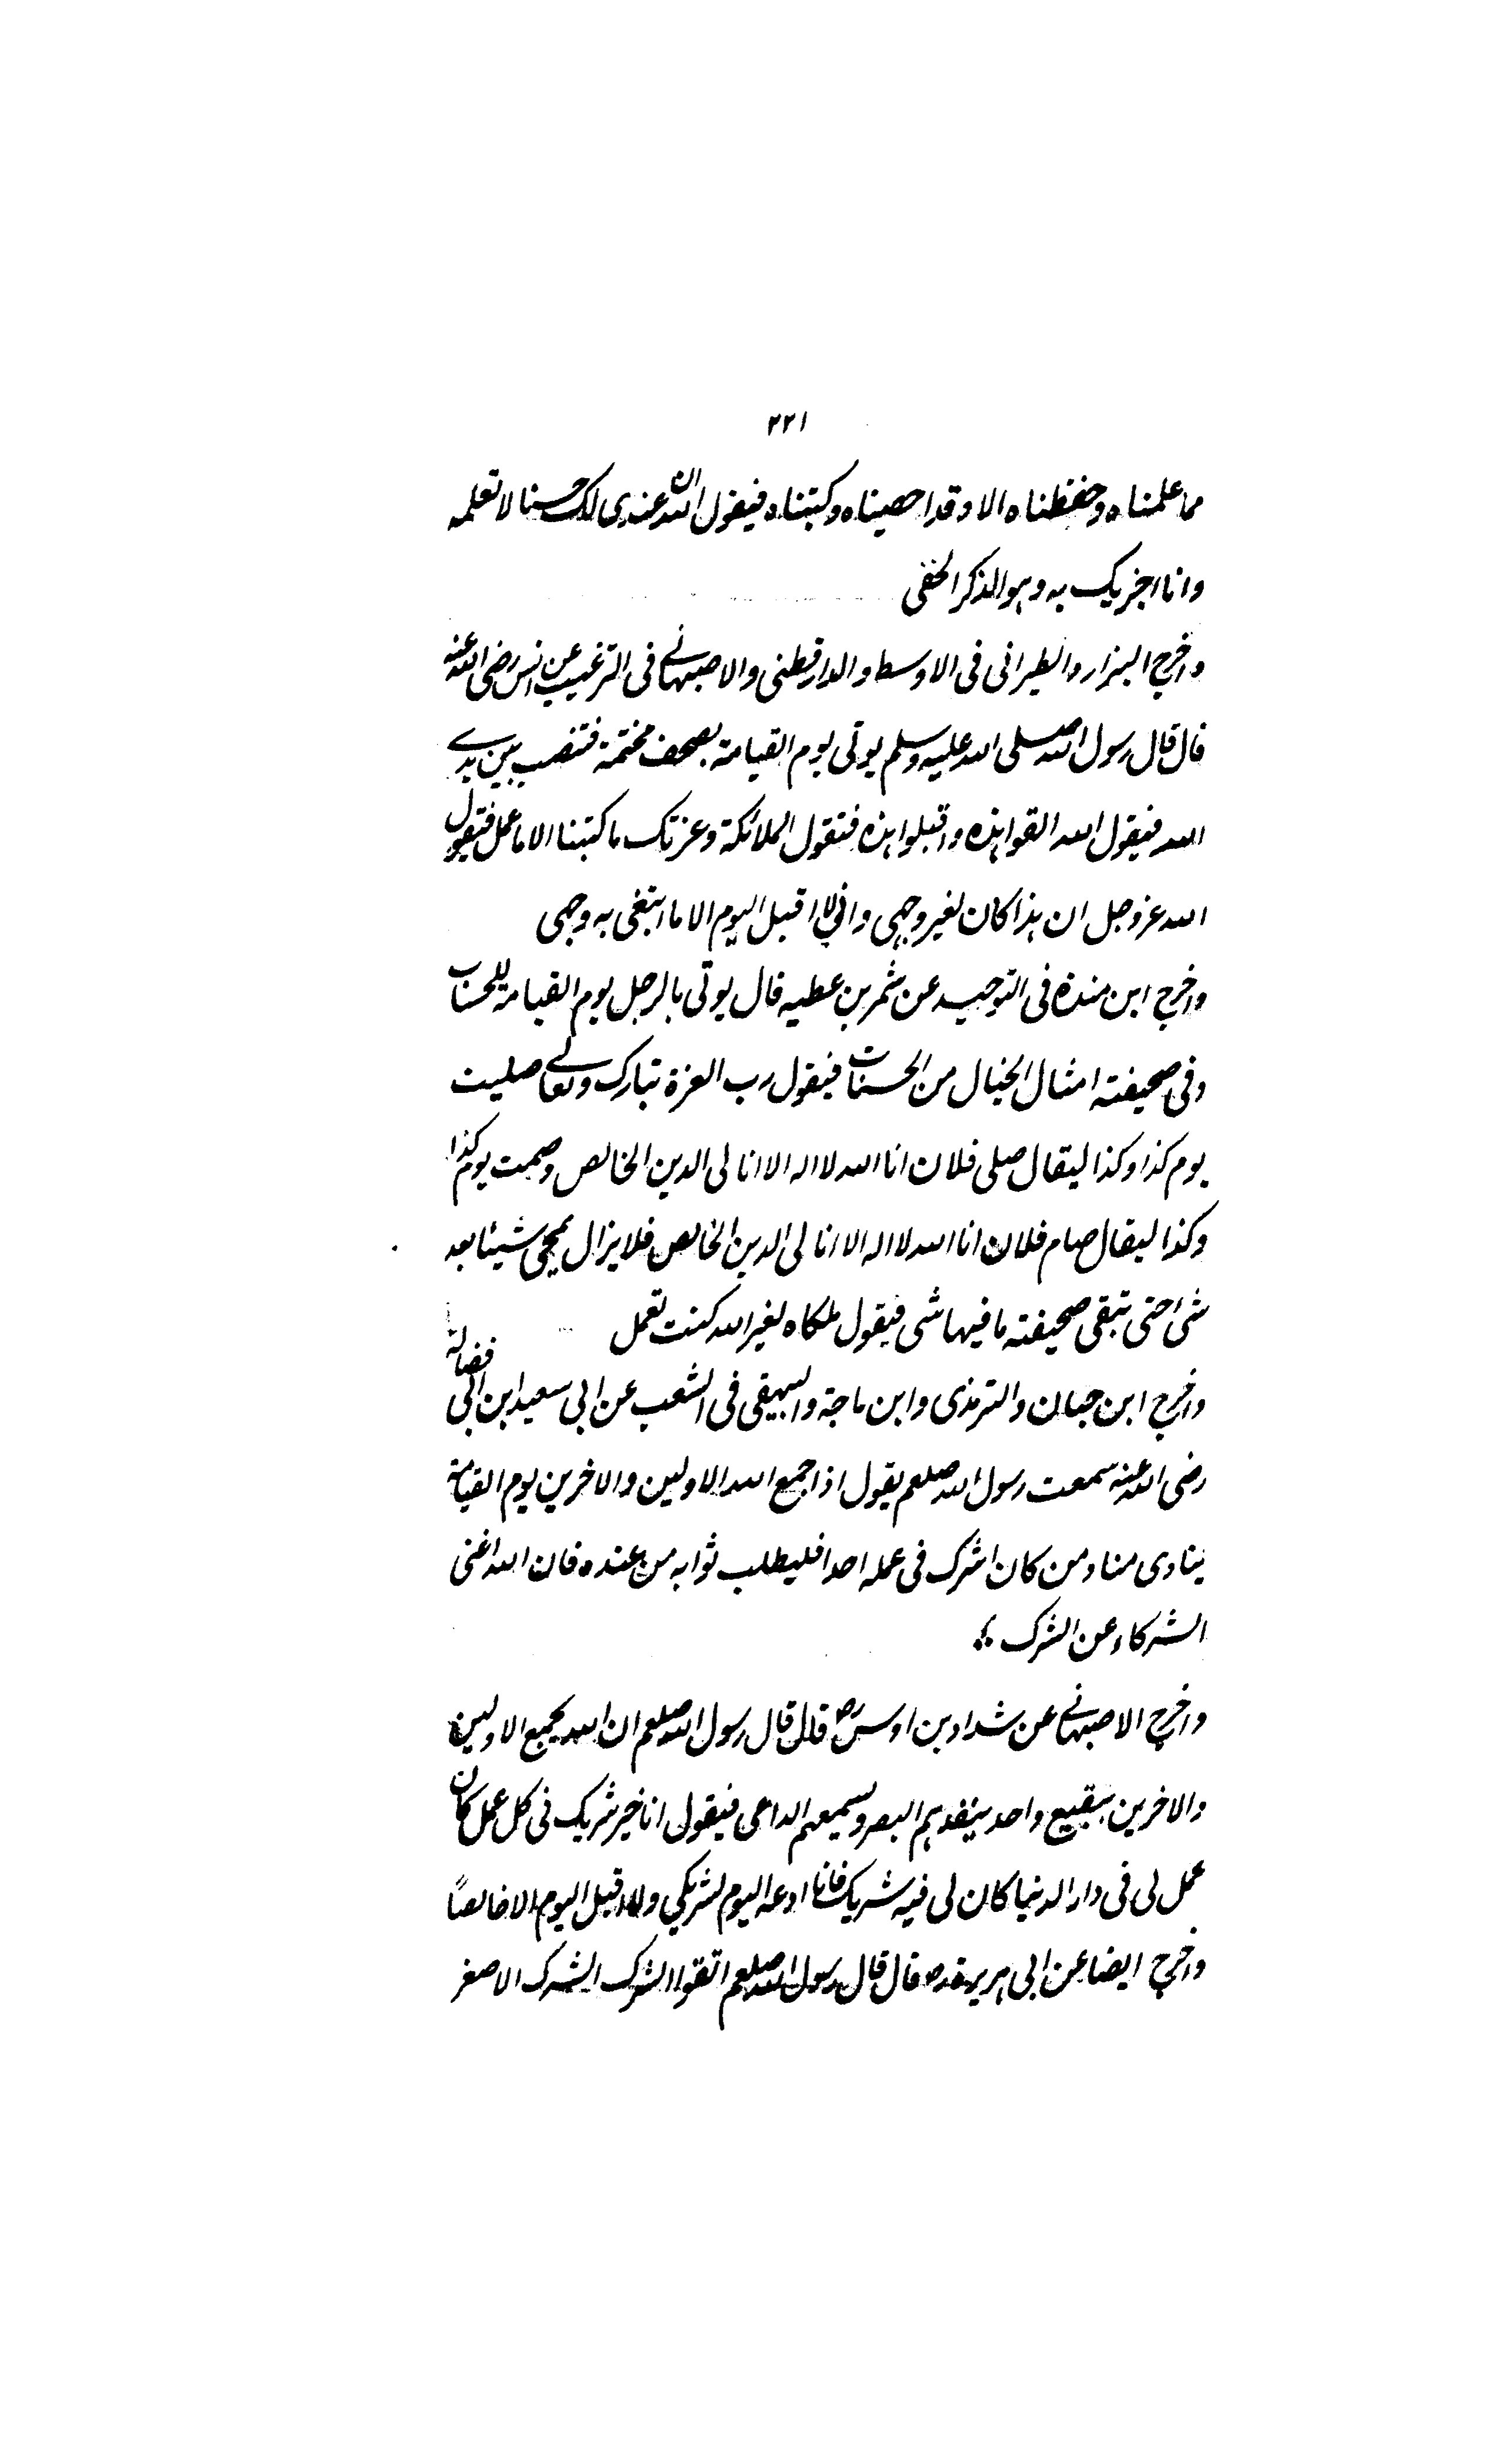 ۲۲۱
مما علمناه وحفظناه الا وقد احصيناه وكتبناه فيقول الله ان عندى لك حسنا لا تعلمه
وانا اجزيك به وهو الذكر الخفى
واخرج البزار والطبرانى فى الاوسط والدارقطنى والاصبهانے فى الترغيب عن انس رضى الله عنه
قال قال رسول الله صلى الله عليه وسلم يوتى يوم القيامة بصحف مختمة فتنصب بين يدے
الله فيقول الله القوا هذه واقبلوا هذه فتقول الملائكة وعزتك ما كتبنا الا ما عمل فيقول
الله عزوجل ان هذا كان لغير وجهى وانى لا اقبل اليوم الا ما ابتغى به وجهى
واخرج ابن منده فى التوحيد عن شمر بن عطيه قال يوتى بالرجل يوم القيامة للحساب
وفى صحيفته امثال الجبال من الحسنات فيقول رب العزة تبارك وتعالے صليت
يوم كذا وكذا ليقال صلى فلان انا الله لا اله الا انا لى الدين الخالص وصمت يوم كذا
وكذا ليقال صام فلان انا الله لا اله الا انا لى الدين الخالص فلا يزال يمحى شيئا بعد
شئ حتى تبقى صحيفته ما فيها شى فيقول ملكاه لغير الله كنت تعمل
واخرج ابن حبان والترمذى وابن ماجة والبيهقى فى الشعب عن ابى سعيد ابن ابى فضالة
رضى الله عنه سمعت رسول الله صلعم يقول اذا جمع الله الاولين والاخرين يوم القيامة
ينادى مناد من كان اشرك فى عمله احدا فليطلب ثوابه من عنده فان الله اغنى
الشركاء عن الشرك ؞
واخرج الاصبهانے عن شداد بن اوس رض قال قال رسول الله صلعم ان الله يجمع الاولين
والاخرين ببقيع واحد ينفذهم البصر ويسمعهم الداعى فيقول انا خير شريك فى كل عمل كان
عمل لى فى دار الدنيا كان لى فيه شريك فانا ادعه اليوم لشريكي ولا اقبل اليوم الا خالصاً
واخرج ايضا عن ابى هريرة رض قال قال رسول الله صلعم اتقوا الشرك الشرك الاصغر